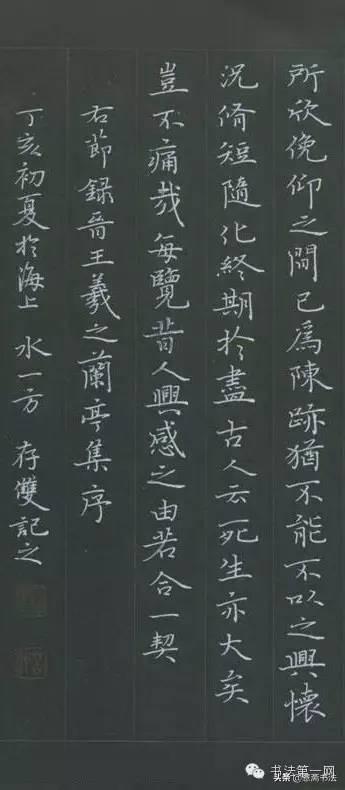 所欣俛仰之間已爲陳跡猶不能不以之興懷
況脩短隨化終期於盡古人云死生亦大矣
豈不痛哉每覽昔人興感之由若合一契
右節録晉王羲之蘭亭集序
丁亥初夏於海上 水一方 存雙記之
书法第一网
头条 @慈斋书法